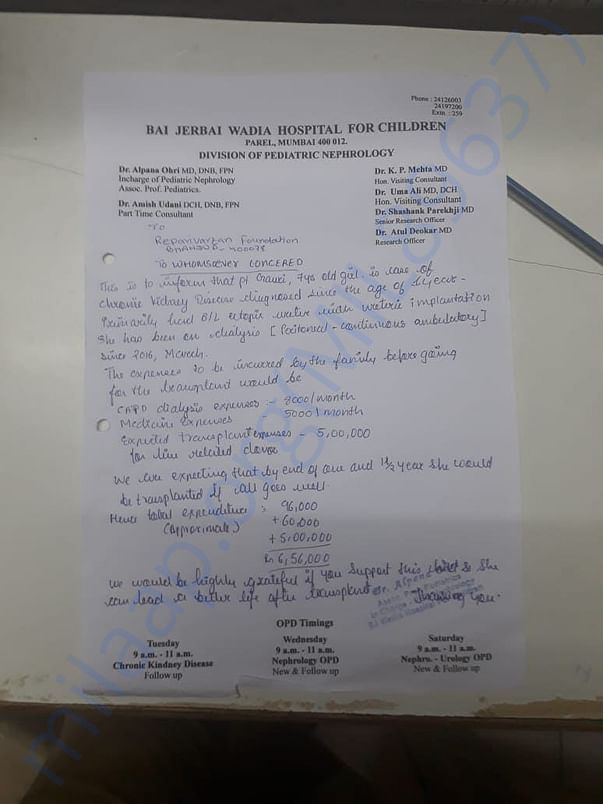 Phone : 24126003
24197200
Extn. : 259
BAI JERBAI WADIA HOSPITAL FOR CHILDREN
PAREL, MUMBAI 400 012.
DIVISION OF PEDIATRIC NEPHROLOGY
Dr. Alpana Ohri MD, DNB, FPN
Incharge of Pediatric Nephrology
Assoc. Prof. Pediatrics.
Dr. Amish Udani DCH, DNB, FPN
Part Time Consultant
Dr. K. P. Mehta MD
Hon. Visiting Consultant
Dr. Uma Ali MD, DCH
Hon. Visiting Consultant
Dr. Shashank Parekhji MD
Senior Research Officer
Dr. Atul Deokar MD
Research Officer
To
Foundation
TO WHOMSOEVER CONCERED
This is to inform that pt 7yr old girl, is case of
chronic kidney Disease diagnosed since the age of
Primarily had B/L ectopic ureter with ureteric implantation
She has been on dialysis [Peritoneal - continuous ambulatory]
since 2016, March.
The expenses to be incurred by the family before going
for the transplant would be
CAPD dialysis expenses :- 8000/month
Medicine Expenses - 5000/month
Expected transplant expenses - 5,00,000
for live related donor
We are expecting that by end of one and 1½ year she would
be transplanted if all goes well.
Hence total expenditure : 96,000
(approximate) + 60,000
+ 5,00,000
Rs 6,56,000
We would be highly grateful if you support this child so she
can lead a better life after transplant. Thanking you.
Dr. Alpana Ohri
OPD Timings
Tuesday
9 a.m. - 11 a.m.
Chronic Kindney Disease
Follow up
Wednesday
9 a.m. - 11 a.m.
Nephrology OPD
New & Follow up
Saturday
9 a.m. - 11 a.m.
Nephro. - Urology OPD
New & Follow up